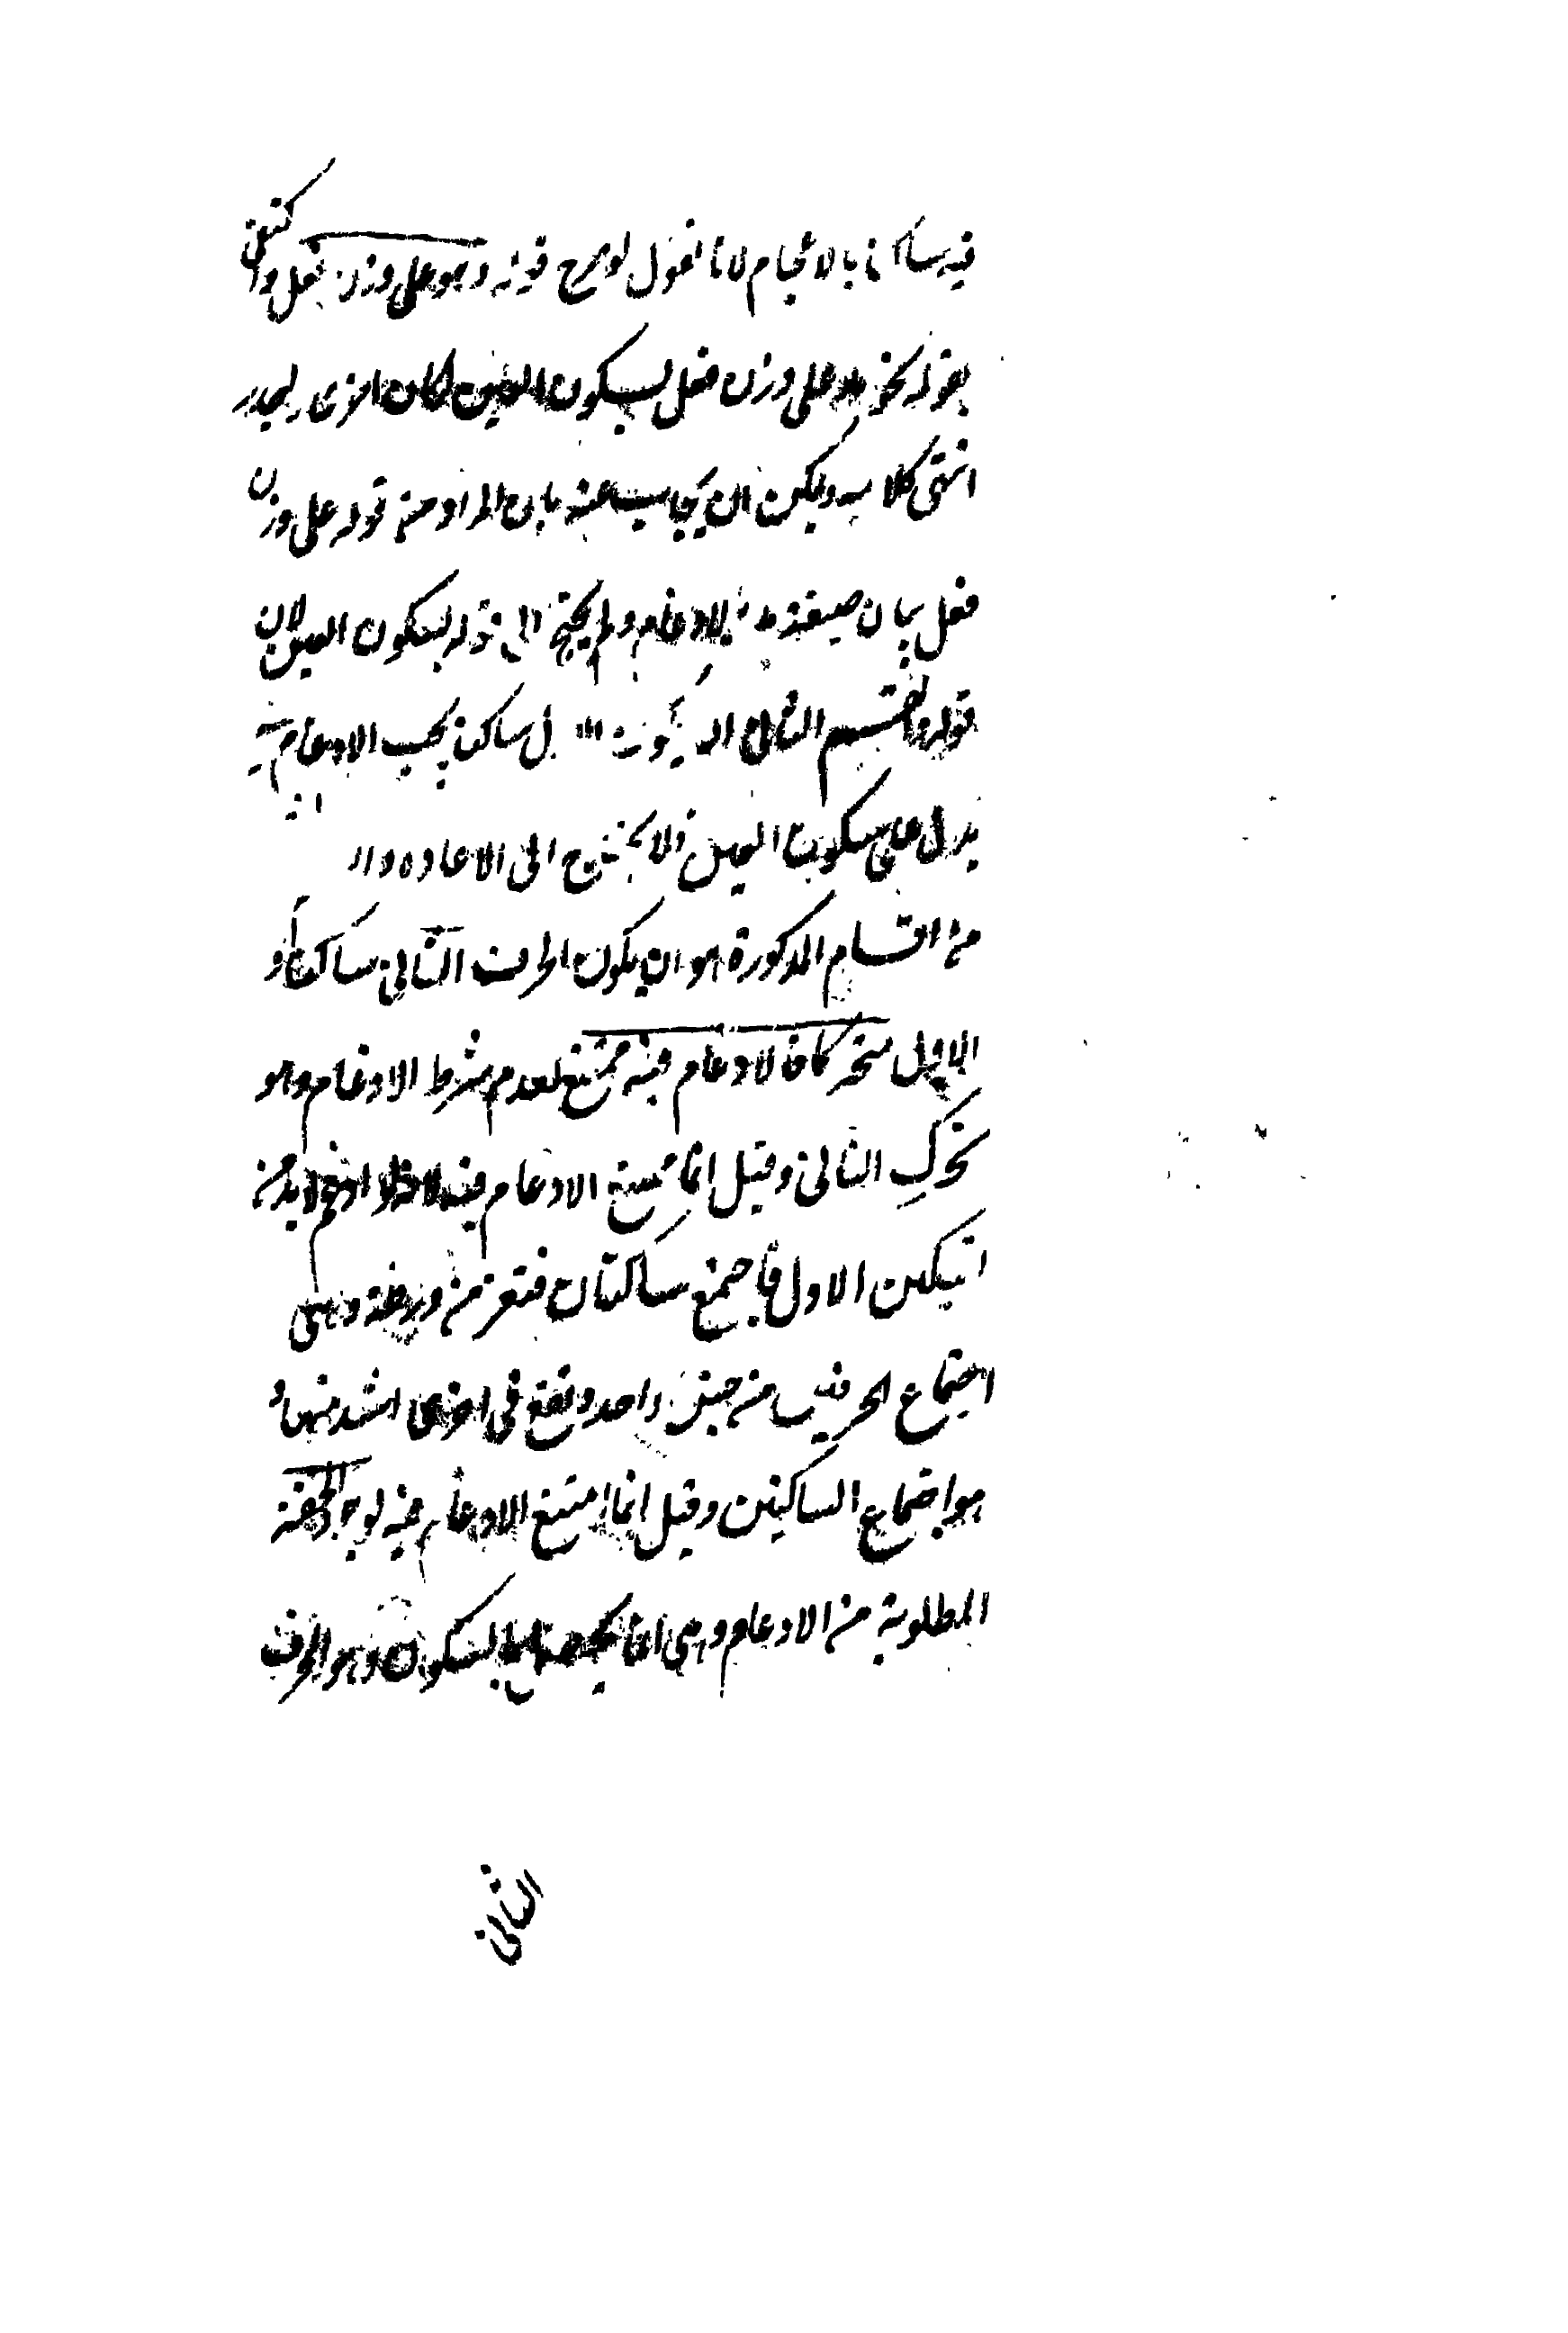 فيه ساكنا بالاعجام لانا نقول لو طرح قوله وهو على وزن فعل واكتفى
بقوله نحو مد على وزن فعل بسكون العين لكان احرى
انتهى كلامه ويمكن ان يجاب عنه بان المراد من قوله على وزن
فعل بيان صيغة مد بالادغام ولم يحتج الى قوله بسكون العين لان
قوله والقسم الثانى ان يكون الاول ساكنا يجب الادغام فيه
يدل على سكون العين فلا يحتاج الى الاعادة
من اقسام المذكورة هو ان يكون الحرف الثانى ساكنا و
الاول متحركا فالادغام فيه ممتنع لعدم شرط الادغام وهو
تحرك الثانى وقيل انما يمتنع الادغام فيه لانه لو ادغم لا بد من
تسكين الاول فاجتمع ساكنان فتفر من ورطة وهى
اجتماع الحرفين من جنس واحد وتقع فى اخرى اشد منها و
هو اجتماع الساكنين وقيل انما امتنع الادغام فيه لوجود الخفة
المطلوبة من الادغام وهى انما بالسكون وهو الحرف
الثانى